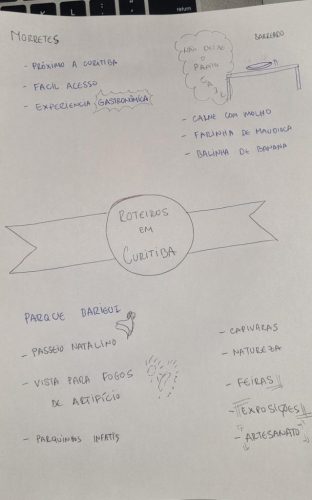 return
MORRETES
- PRÓXIMO A CURITIBA
- FACIL ACESSO
- EXPERIENCIA GASTRONÔMICA
NÃO DEIXE
O
PRATO
BARREADO
- CARNE COM MOLHO
- FARINHA DE MANDIOCA
- BALINHA DE BANANA
ROTEIROS
EM
CURITIBA
PARQUE BARIGUI
- PASSEIO NATALINO
- VISTA PARA FOGOS
DE ARTIFÍCIO
- PARQUINHOS INFATIS
- CAPIVARAS
- NATUREZA
- FEIRAS
- EXPOSIÇÕES
- ARTESANATO